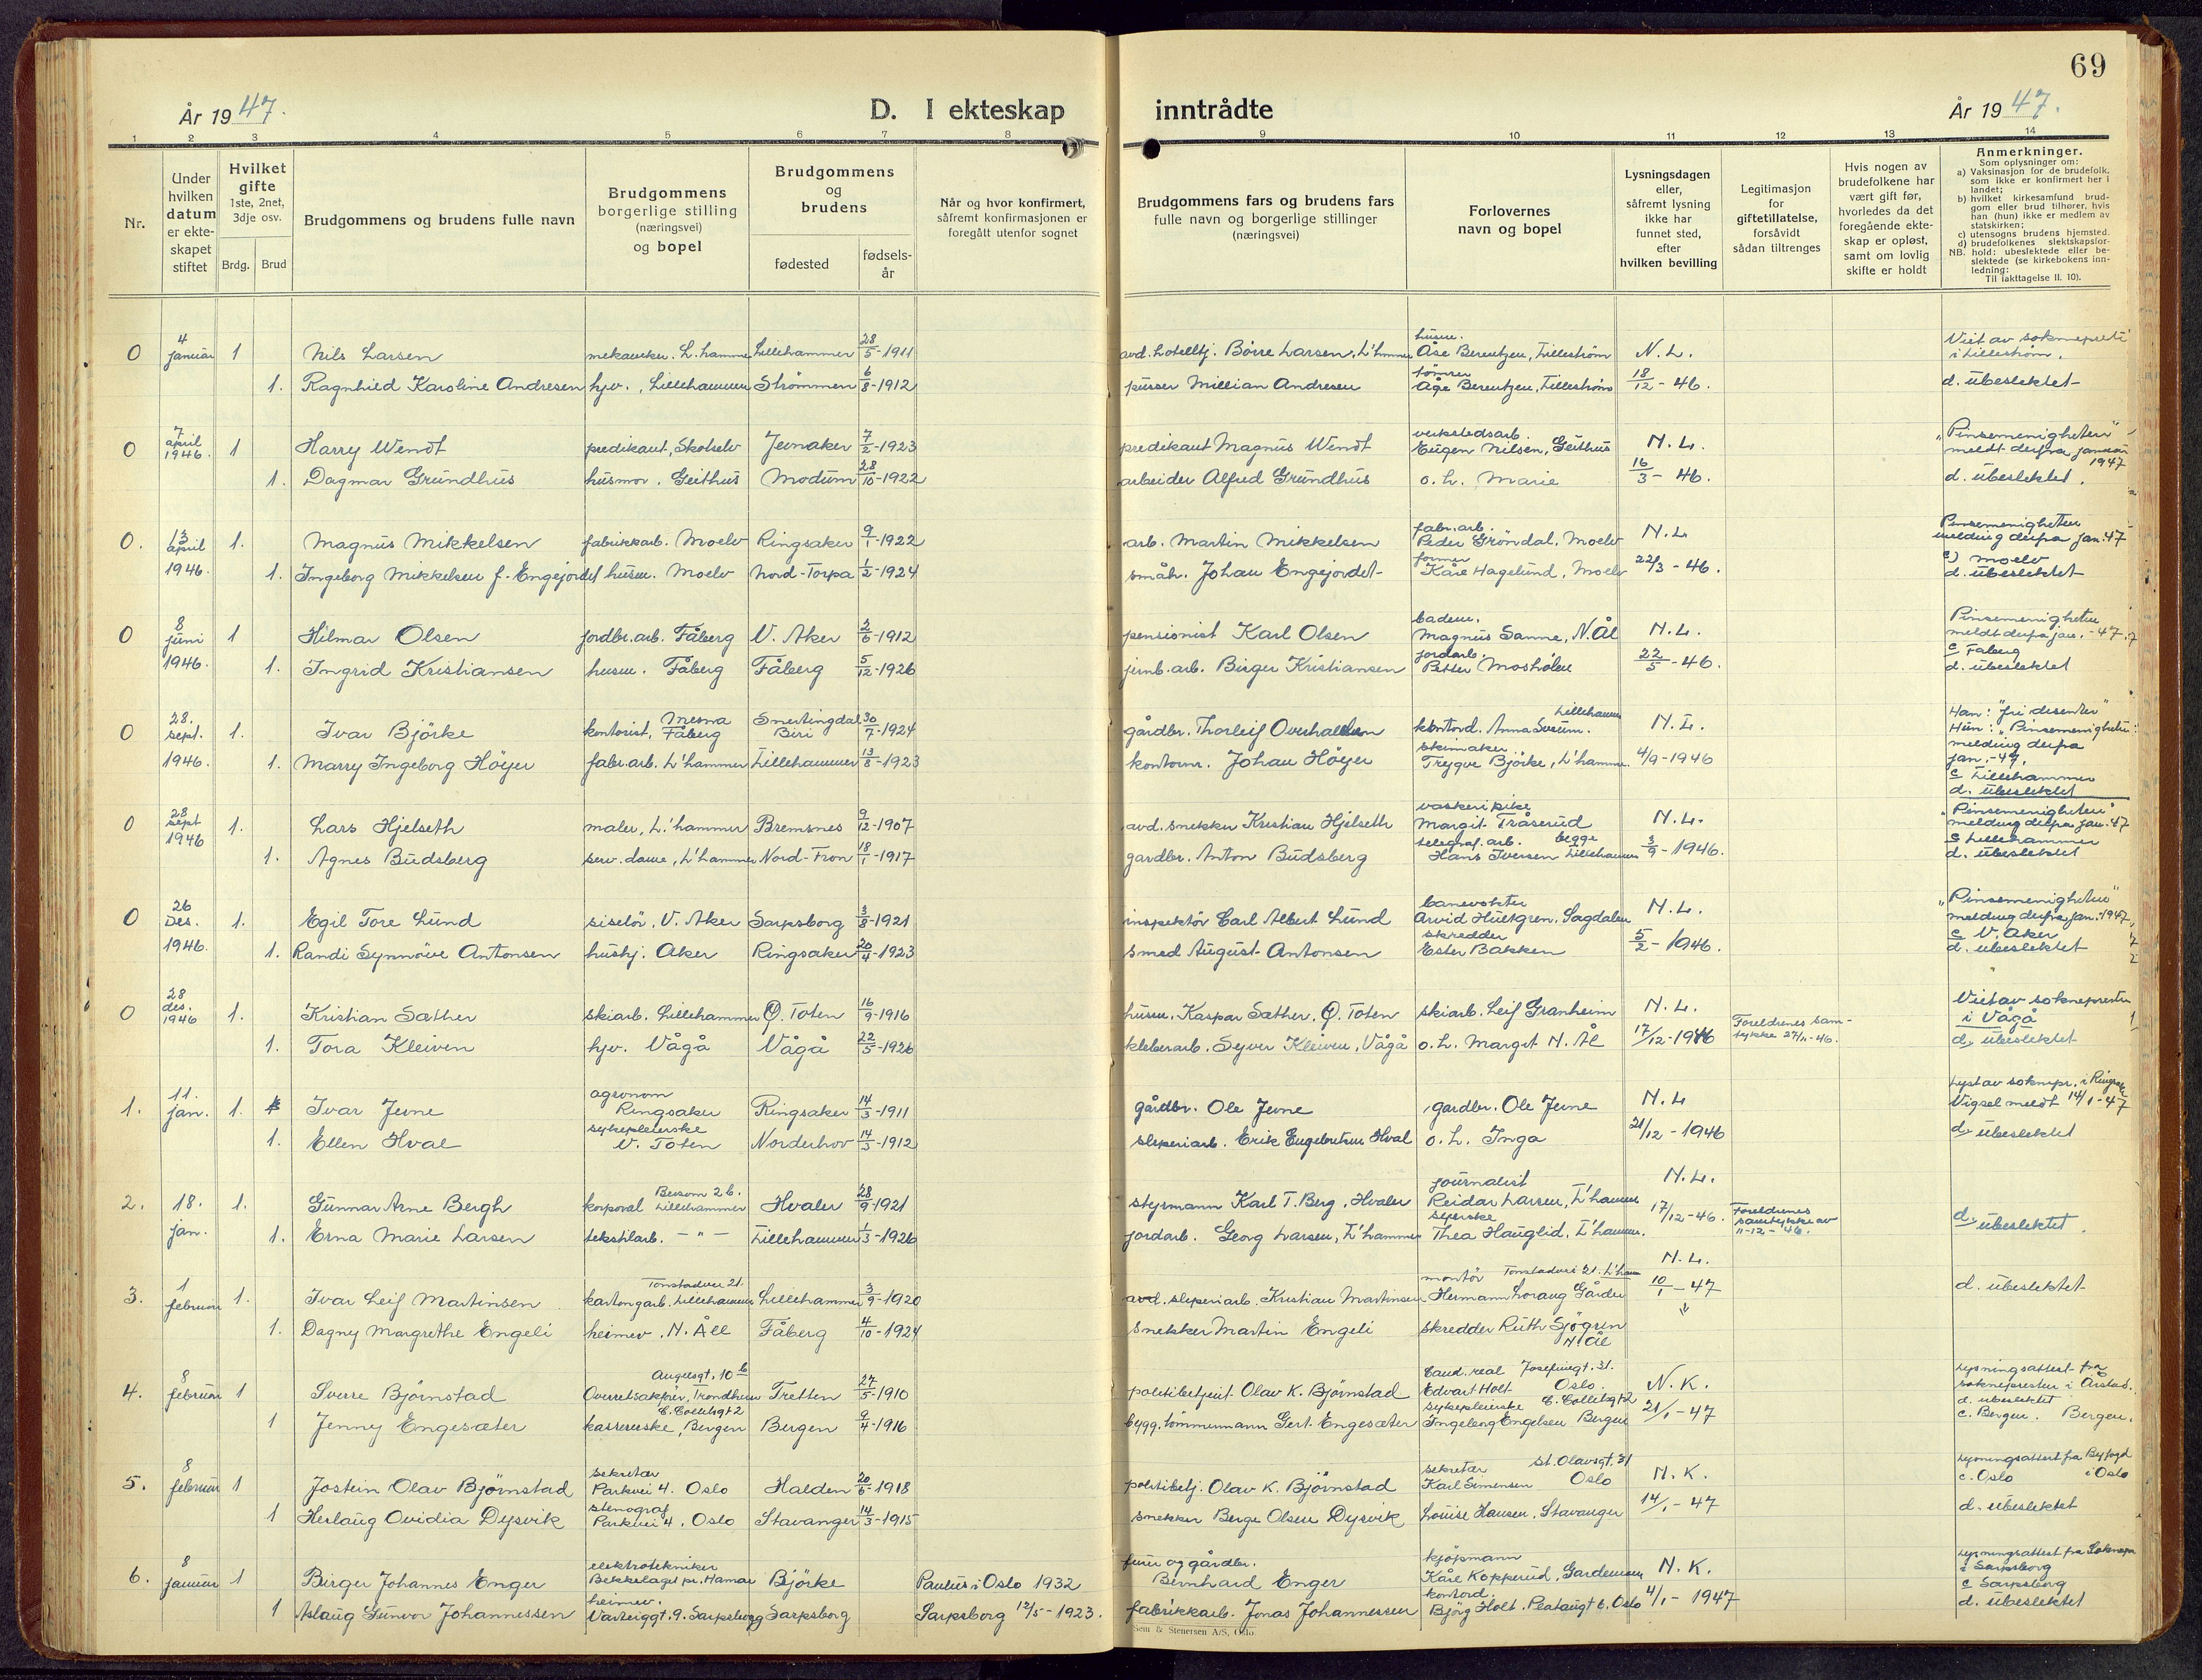 69
År 1947.
D. I ekteskap inntrådte
År 1947.
1 2 3 4 5 6 7 8 9 10 11 12 13 14
Nr.
Under hvilken datum er ekteskapet stiftet
Hvilket gifte 1ste, 2net, 3dje osv.
Brdg. Brud
Brudgommens og brudens fulle navn
Brudgommens borgerlige stilling (næringsvei) og bopel
Brudgommens og brudens
fødested
fødselsår
Når og hvor konfirmert, såfremt konfirmasjonen er foregått utenfor sognet
Brudgommens fars og brudens fars fulle navn og borgerlige stillinger (næringsvei)
Forlovernes navn og bopel
Lysningsdagen eller, såfremt lysning ikke har funnet sted, efter hvilken bevilling
Legitimasjon for giftetillatelse, forsåvidt sådan tiltrenges
Hvis nogen av brudefolkene har vært gift før, hvorledes da det foregående ekteskap er opløst, samt om lovlig skifte er holdt
Anmerkninger.
Som oplysninger om:
a) Vaksinasjon for de brudefolk, som ikke er konfirmert her i landet;
b) hvilket kirkesamfund brudgom eller brud tilhører, hvis han (hun) ikke er medlem av statskirken;
c) utensogns brudens hjemsted.
d) brudefolkenes slektskapsforhold: ubeslektede eller beslektede (se kirkebokens innledning:
NB. Til iakttagelse II. 10).
0 4 januar 1 Nils Larsen mekaniker. L.hammer Lillehammer 28/5-1911 avd. hotelltj. Börre Larsen, L'hammer husm. Åse Berentzen, Lilleström N.L. Viet av sokneprest i Lilleström.
1. Ragnhild Karoline Andresen hjv., Lillehammer Strömmen 6/8-1912 pusser Millian Andresen tömrer Åge Berentzen, Lilleström 18/12-46. d. übeslektet
0 7 april 1946. 1 Harry Wendt predikant, Skotselv Jevnaker 7/2-1923 predikant Magnus Wendt verkstedsarb. Eugen Nilsen, Geithus N.L. "Pinsemenigheten" meldt derfra januar 1947
1. Dagmar Grundhus husmor. Geithus Modum 28/10-1922 arbeider Alfred Grundhus o.h. Marie 16/3-46. d. übeslektet.
0. 13 april 1946. 1. Magnus Mikkelsen fabrikkarb. Moelv Ringsaker 9/1-1922 arb. Martin Mikkelsen fabr.arb. Peder Gröndal, Moelv N.L. Pinsemenigheten melding derfra jan. 47
1. Ingeborg Mikkelsen f. Engejordet husm. Moelv Nord-Torpa 1/2-1924 småbr. Johan Engejordet former Kåre Hagelund, Moelv 22/3-46. c) Moelv d. übeslektet
0 8 juni 1946. 1 Hilmar Olsen jordbr.arb. Fåberg V. Aker 2/6-1912 pensionist Karl Olsen badem. Magnus Sanne, N Ål N.L. Pinsemenigheten meldt derfra jan. -47.
1. Ingrid Kristiansen husm. Fåberg Fåberg 5/12-1926 jernb.arb. Birger Kristiansen jordarb. Petter Mosholen 22/5-46. c Fåberg d. übeslektet
0 28. sept. 1946. 1. Ivar Björke kontorist, Mesna Fåberg Snertingdal Biri 30/7-1924 gårdbr. Thorleif Overhallen kontord. Anna Sveum. Lillehammer N.L. Han: "fri disenter" Hun: "Pinsemenigheten" melding derfra jan. -47.
1. Marry Ingeborg Höyer fabr.arb. L'hammer Lillehammer 13/8-1923 kontorm. Johan Höyer skimaker Trygve Björke, L'hammer. 4/9-1946 c Lillehammer d. übeslektet
0 28 sept 1946 1. Lars Hjelseth maler, L.'hammer Bremsnes 9/12-1907 avd. snekker Kristian Hjelseth vaskeripike Margit Tråserud N.L. "Pinsemenigheten" melding derfra jan. 47
1. Agnes Budsberg serv. dame, L'hammer Nord-Fron 18/1-1917 gardbr. Anton Budsberg telegraf.arb. Hans Iversen begge Lillehammer 3/9-1946. c Lillehammer d. übeslektet
0 26 Des. 1946. 1. Egil Tore Lund siselör, V. Aker Sarpsborg 3/8-1921 inspektör Carl Albert Lund banevokter Arvid Hultgren, Sagdalen N.L. "Pinsemenigheten" melding derfra jan. 1947,
1. Randi Synnöve Antonsen hushj. Aker Ringsaker 20/4-1923 smed August Antonsen skredder Ester Bakken 5/2-1946. c V. Aker d. übeslektet
0 28 des. 1946 1. Kristian Sæther skiarb. Lillehammer Ø. Toten 16/9-1916 husm. Kaspar Sæther, Ø. Toten skiarb. Leif Granheim N.L. Viet av soknepresten i Vågå
1. Tora Kleiven hjv. Vågå Vågå 22/5-1926 kleberarb. Syver Kleiven, Vågå o.h. Margit N. Ål 17/12-1946 Foreldrenes samtykke 27/11-46. d. übeslektet
1. 11. jan. 1. Ivar Jevne agronom Ringsaker Ringsaker 14/3-1911 gårdbr. Ole Jevne gardbr. Ole Jevne N.L Lyst av soknepr. i Ringsaker Vigsel meldt 14/1-47
1. Ellen Hval sykepleierske V. Toten Norderhov 14/3-1912 sliperiarb. Erik Engebretsen Hval o.h. Inga 21/12-1946 d. übeslektet
2. 18. jan. 1. Gunnar Arne Bergh korporal Lillehammer Hvaler 28/9-1921 styrmann Karl T. Berg, Hvaler journalist Reidar Larsen, L'hammer N.L. 17/12-46. Foreldrenes samtykke av 11-12-46. d. übeslektet.
1. Erna Marie Larsen tekstilarb. -"- Lillehammer 1/3-1926 jordarb. Georg Larsen, L'hammer syerske Thea Hauglid, L'hammer.
3. 1 februar 1. Ivar Leif Martinsen kartongarb. Lillehammer Lillehammer 3/9-1920 avd. sliperiarb. Kristian Martinsen montör Hermann Lorang Gårder N.L. 10/1-47 d. übeslektet
1. Dagny Margrethe Engeli heimev. N. Ål Fåberg 4/10-1924 snekker Martin Engeli skredder Ruth Sjögren N. Ål
4. 8 februar 1 Sverre Björnstad Angelsgt. 10b Overretssakförer, Trondheim Tretten 27/5-1910 politibetjent Olav K. Björnstad Cand. real Edvart Holt Josefinegt. 31. Oslo. N.K. Lysningsattest fra soknepresten i Årstad.
1 Jenny Engesæter C. Collettsgt 2 kassererske, Bergen Bergen 9/4-1916 bygg. tömmermann Gert. Engesæter sykepleierske Ingeborg Engelsen Bergen 21/1-47 d. übeslektet c. Bergen. Bergen.
5. 8 februar 1 Jostein Olav Björnstad sekretær Parkvei 4. Oslo Halden 20/6-1918 politibetj. Olav K. Björnstad sekretær Karl Simensen St. Olavsgt. 31 Oslo N.K. Lysningsattest fra Byfogd i Oslo c. Oslo
1 Herlaug Ovidia Dysvik stenograf Parkvei 4. Oslo Stavanger 14/3-1915 snekker Berge Olsen Dysvik Louise Hansen, Stavanger 14/1-47 d. übeslektet
6. 8 januar 1 Birger Johannes Enger elektrotekniker Bekkelaget pr. Hamar Björke Paulus i Oslo 1932 furer og gårdbr. Bernhard Enger kjöpmann Kåre Kopperud, Gardemoen N.K. Lysningsattest fra Soknepr i Sarpsborg
1 Aslaug Gunvor Johannessen heimev. Varteiggt. 9. Sarpsborg Sarpsborg Sarpsborg 12/5-1923. fabrikkarb. Jonas Johannessen kontord. Björg Holt. 6. Oslo 4/1-1947 c Sarpsborg d. übeslektet
Sem & Stenersen A/S, Oslo.